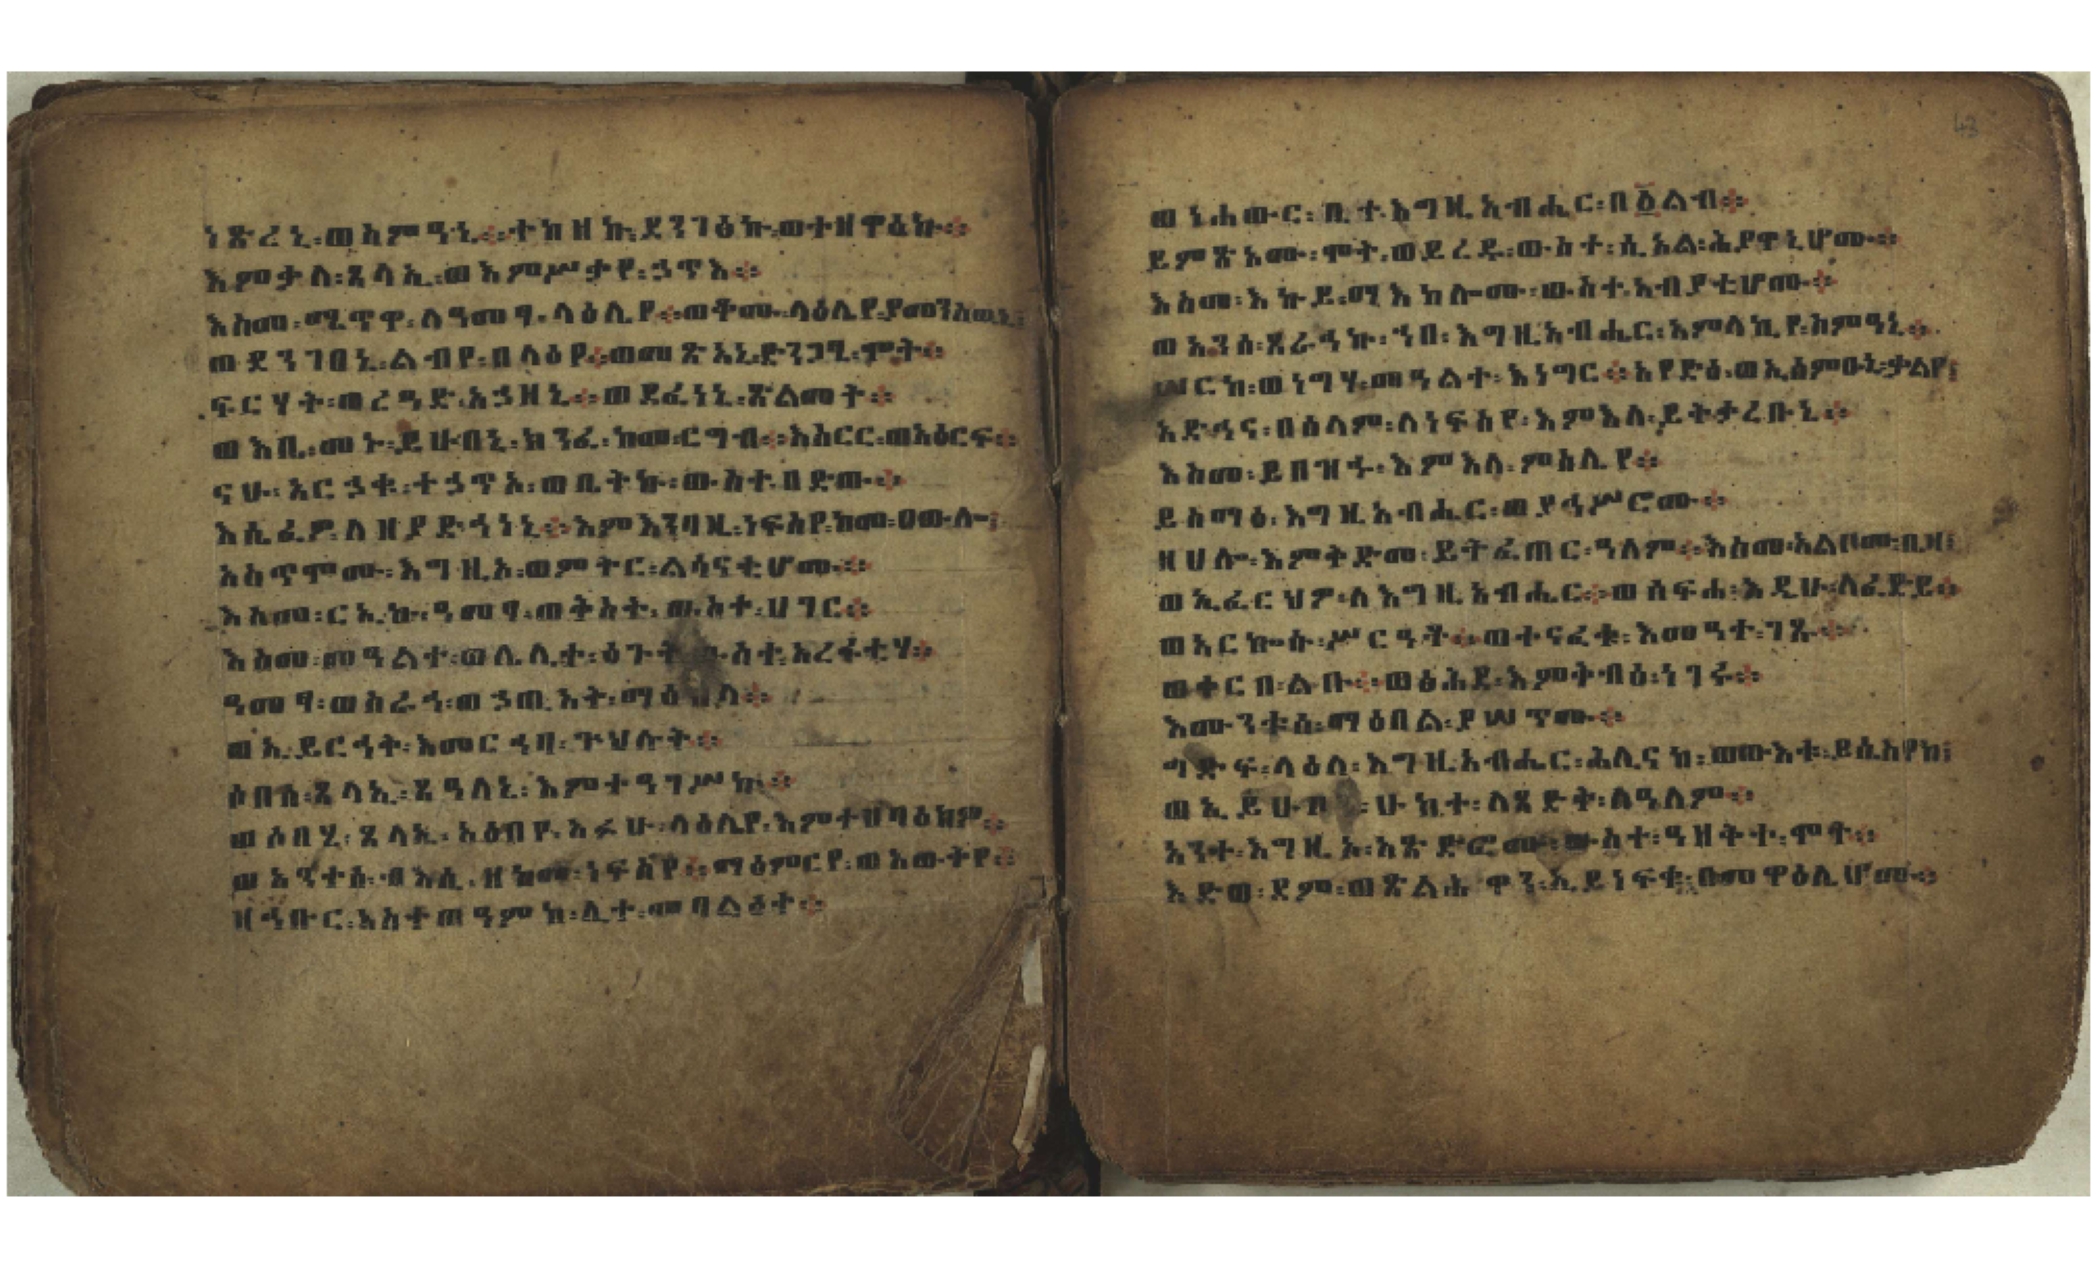 ነጽረኒ፡ወስምዓኒ። ተከዝኩ፡ደንገፅኩ፡ወተዘዋዕኩ።
እምቃለ፡ጸላኢ፡ወእምሥቃየ፡ኃጥእ።
እስመ፡ሜጥዋ፡ለዓመፃ፡ላዕሌየ። ወቆሙ፡ላዕሌየ፡ያመንስዉኒ፤
ወደንገፀኒ፡ልብየ፡በላዕየ። ወመጽአኒ፡ድንጋፄ፡ሞት።
ፍርሃት፡ወረዓድ፡አኃዘኒ። ወደፈነኒ፡ጽልመት።
ወእቤ፡መኑ፡ይሁበኒ፡ክንፈ፡ከመ፡ርግብ። እስርር፡ወአዕርፍ።
ናሁ፡አርኃቁ፡ተኃጥአ፡ወቤትኩ፡ውስተ፡በድው።
እሴፈዎ፡ለዘያድኅነኒ። እምእንባዜ፡ነፍስየ፡ከመ፡ዐውሎ፤
አስጥሞሙ፡እግዚአ፡ወምትር፡ልሳናቲሆሙ።
እስመ፡ርኢኩ፡ዓመፃ፡ወቅስት፡ውስተ፡ሀገር።
እስመ፡መዓልተ፡ወሌሊተ፡ዕጉት፡ውስተ፡አረፋቲሃ።
ዓመፃ፡ወስራኅ፡ወኃጢአት፡ማዕከላ።
ወኢይርኅት፡እመርኅባ፡ጕህሉት።
ሶበሰ፡ጸላኢ፡ጸዓለኒ፡እምተዓገሥኩ።
ወሶበሂ፡ጸላኢ፡አዕበየ፡አፉሁ፡ላዕሌየ፡እምተኀባዕክዎ።
ወአንተሰ፡ብእሲ፡ዘከመ፡ነፍስየ። ማዕምርየ፡ወአውትየ።
ዘኅቡር፡አስተጠዓምከ፡ሊተ፡መባልዕተ።
ወነሐውር፡ቤተ፡እግዚአብሔር፡በ፩ልብ።
ይምጽአሙ፡ሞት፡ወይረዱ፡ውስተ፡ሲኦል፡ሕያዋኒሆሙ።
እስመ፡እኩይ፡ማእከሎሙ፡ውስተ፡አብያቲሆሙ።
ወአንሰ፡ጸራኅኩ፡ኀበ፡እግዚአብሔር፡አምላኪየ፡ስምዓኒ።
ሠርከ፡ወነግሃ፡መዓልተ፡እነግር። አየድዕ፡ወኢስምዑኒ፡ቃልየ፤
አድኅና፡በሰላም፡ለነፍስየ፡እምእለ፡ይትቃረቡኒ።
እስመ፡ይበዝኁ፡እምእለ፡ምስሌየ።
ይሰማዕ፡እግዚአብሔር፡ወያኅሥሮሙ።
ዘሀሎ፡እምቅድመ፡ይትፈጠር፡ዓለም። እስመ፡አልቦሙ፡ቤዛ፤
ወኢፈርህዎ፡ለእግዚአብሔር። ወሰፍሐ፡እዴሁ፡ለፈድይ።
ወአርኰሱ፡ሥርዓቶ። ወተናፈቁ፡እመዓተ፡ገጹ።
ወቀርበ፡ልቡ። ወፅሕደ፡እምቅብዕ፡ነገሩ።
እሙንቱሰ፡ማዕበል፡ያሠጥሙ።
ግድፍ፡ላዕለ፡እግዚአብሔር፡ሕሊናከ፡ወውእቱ፡ይሴስየከ፤
ወኢይሁብ፡ሁከተ፡ለጻድቅ፡ለዓለም።
አንተ፡እግዚአ፡አጽድፎሙ፡ውስተ፡ዓዘቅተ፡ሞት።
እድወ፡ደም፡ወጽልሕዋን፡ኢይነፍቁ፡በመዋዕሊሆሙ።